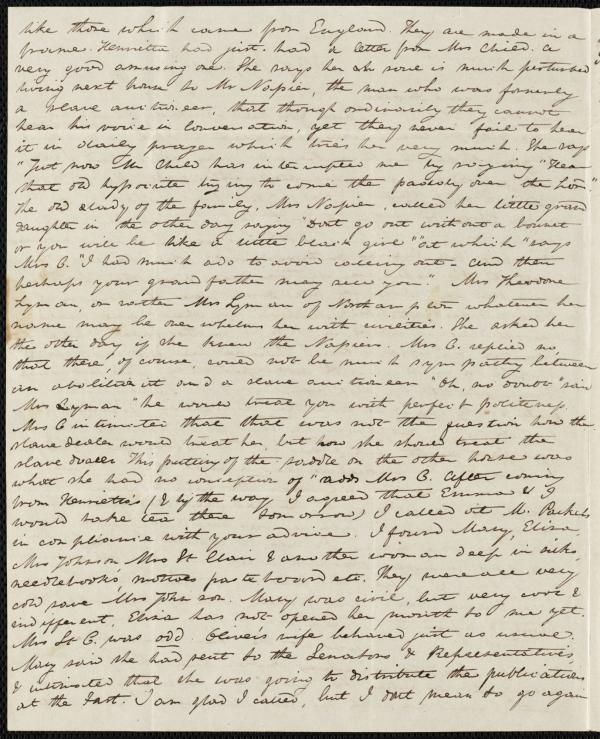 like those which came from England. They are made in a
frame. Henrietta had just had a letter from Mrs Child. a
very good amusing one. She says her is much disturbed
living next house to Mr Napier, the man who was formerly
a slave auctioneer, that though ordinarily they cannot
hear his voice in conversation, yet they never fail to hear
it in daily prayer which tires her very much. She says
"Just now Mr Child has interrupted me by saying "Hear
that old hypocrite trying to come the paddy over the Lord"
The old lady of the family, Mrs Napier, called her little grand
daughter in the other day saying "Dont go out without a bonnet
or you will be like a little black girl" "at which" says
Mrs C. "I had much ado to avoid calling out - and then
perhaps your grand father may sell you." Mrs Theodore
Lyman, or rather Mrs Lyman of Northampton whatever her
name may be over whelms her with civilities. She asked her
the other day if she knew the Napiers. Mrs C. replied no,
that there, of course, could not be much sympathy between
an abolitionist and a slave auctioneer "Oh, no doubt" said
Mrs Lyman "he would treat you with perfect politeness.
Mrs C intimated that that was not the question how the
slave dealer would treat her, but how she should treat the
slave dealer. This putting of the saddle on the other horse was
what she had no conception of" adds Mrs C. After coming
from Henrietta's (& by the way I agreed that Emma & I
would take tea there tomorrow) I called at M. Parker's
in compliance with your advice. I found Mary, Eliza,
Mrs Johnson, Mrs St Clair & another woman deep in silks,
needlebooks, mottoes pasteboard etc. They were all very
cold save Mrs Johnson. Mary was civil, but very cool &
indifferent, Eliza has not opened her mouth to me yet.
Mrs St C. was odd. Oliver's wife behaved just as usual.
Mary said she had sent to the Senators & Representatives
& intimated that she was going to distribute the publications
at the Fast. I am glad I called, but I dont mean to go again